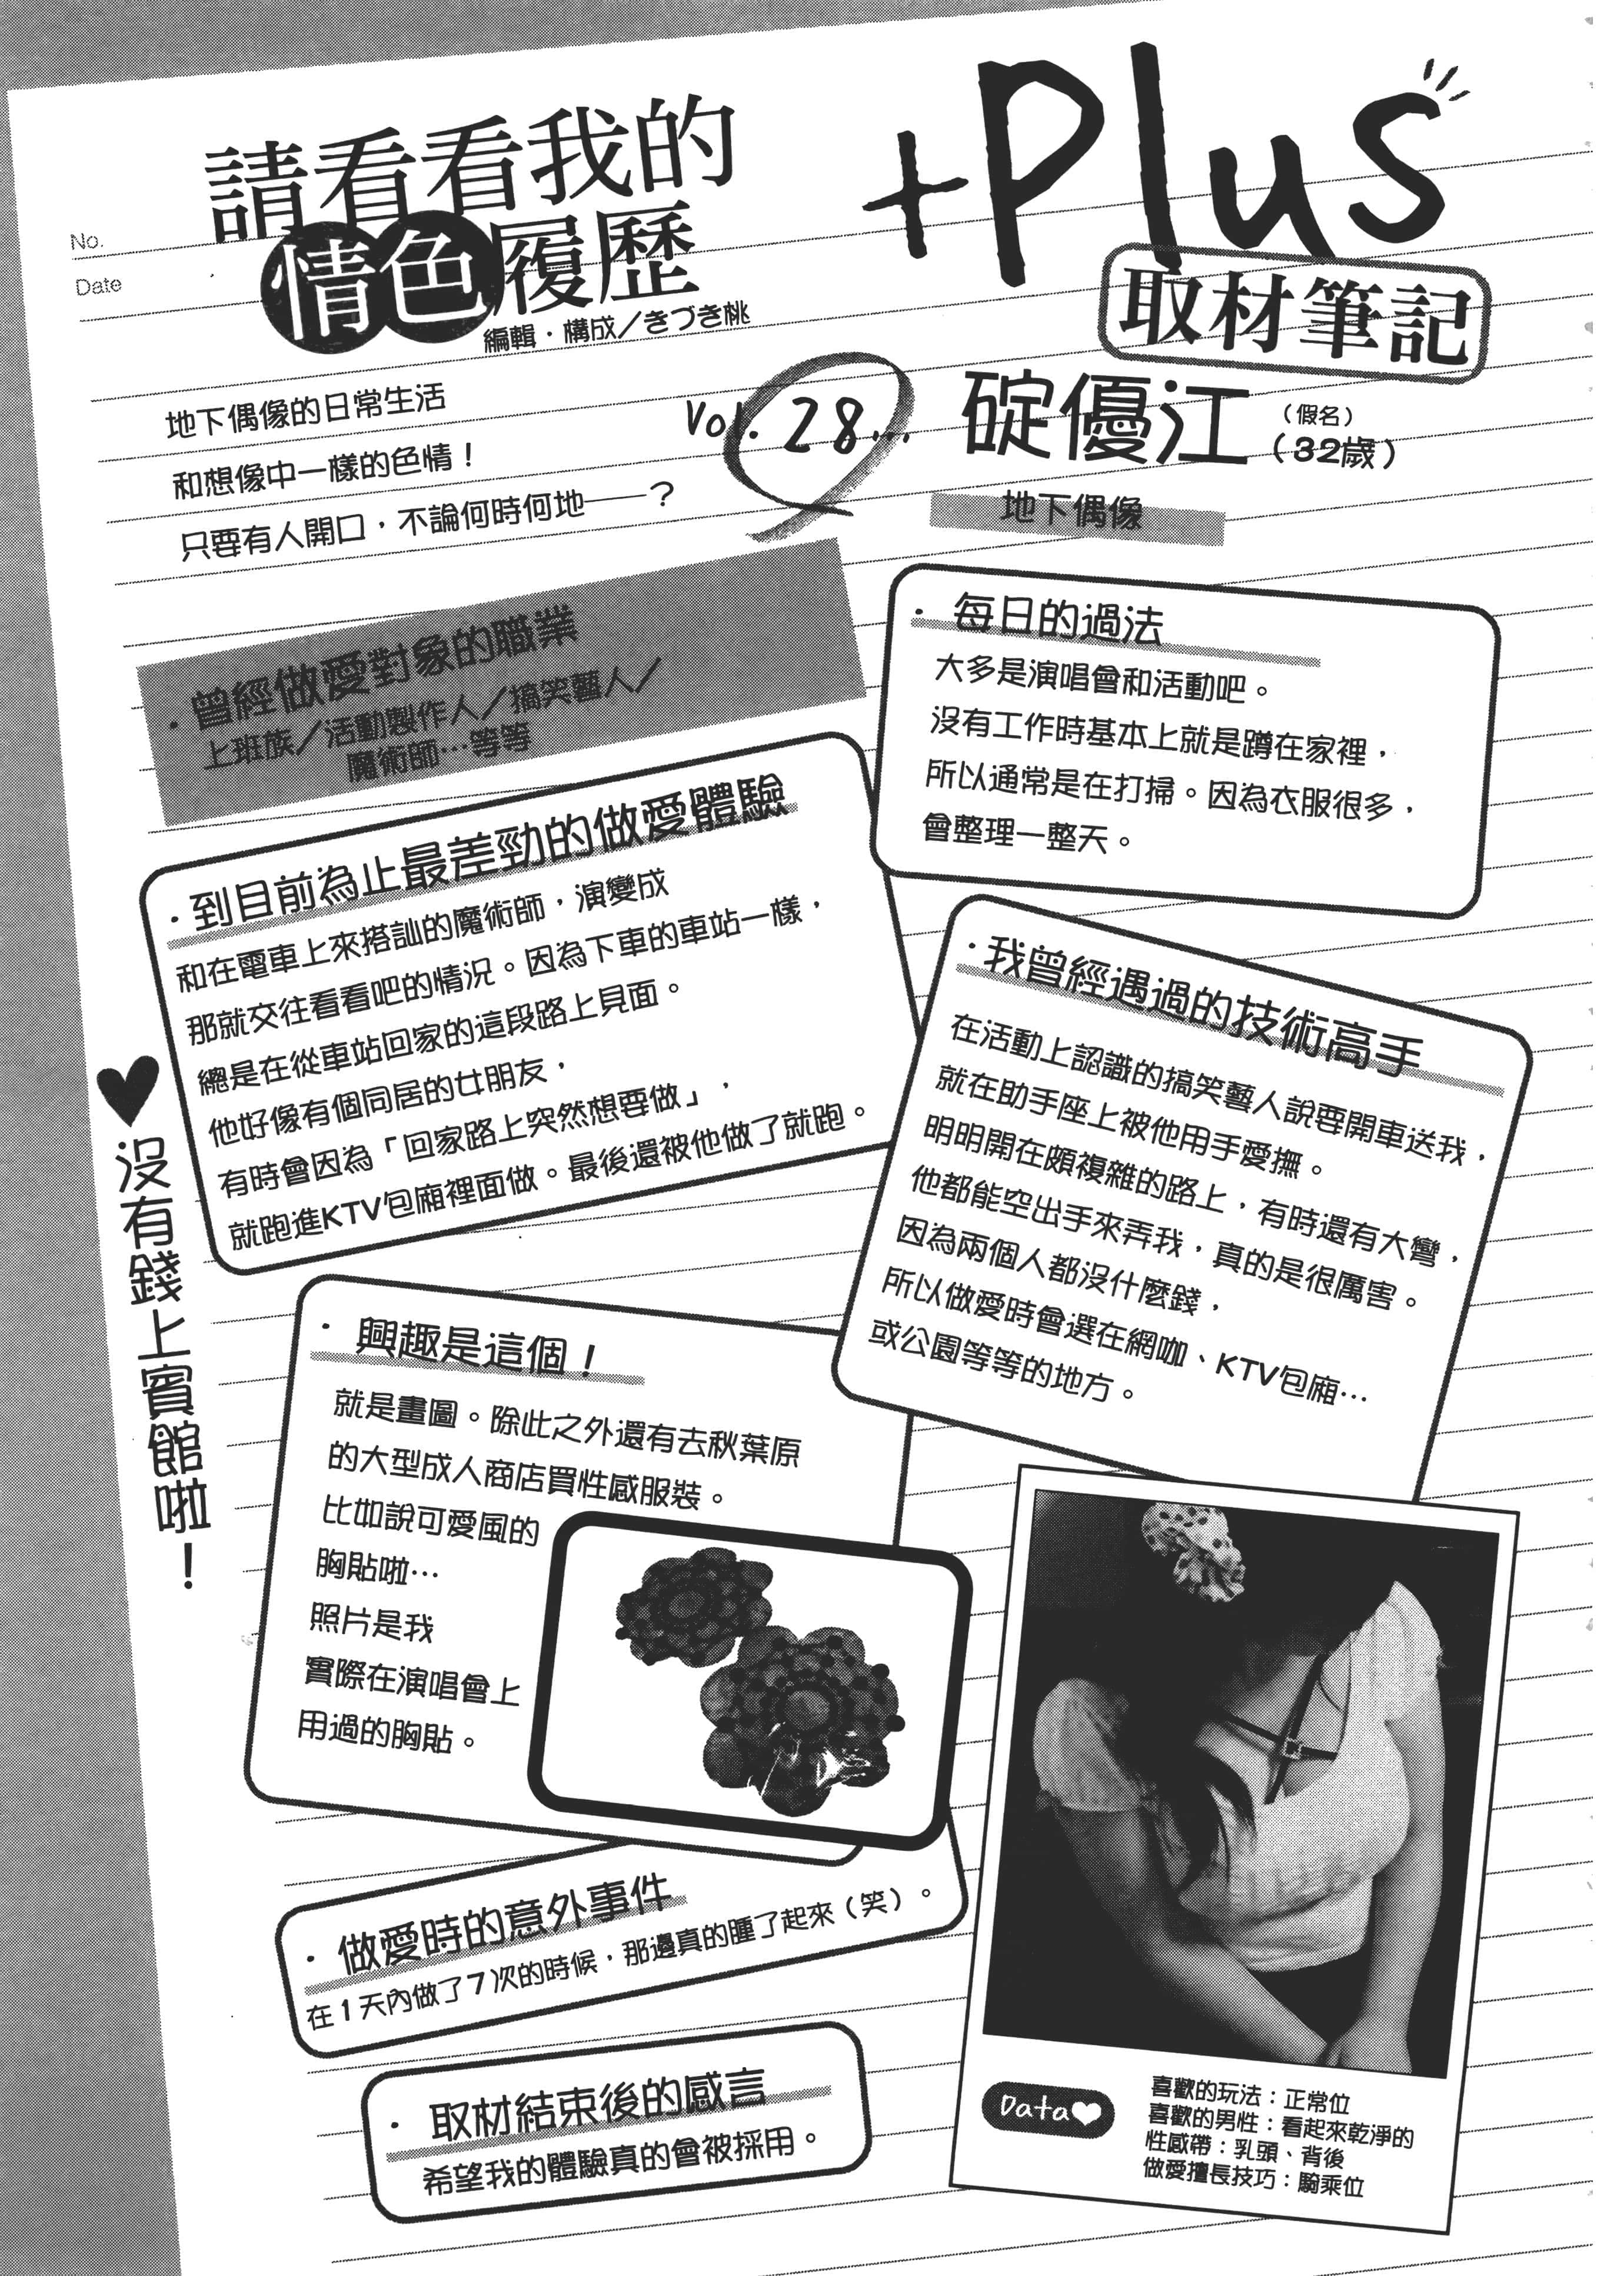 No.
Date
請看看我的
情色履歷
編輯・構成／きづき桃
+Plus
取材筆記
地下偶像的日常生活
和想像中一樣的色情！
只要有人開口，不論何時何地——？
Vol. 28...
碇優江
（假名）
（32歲）
地下偶像
・曾經做愛對象的職業
上班族／活動製作人／搞笑藝人／
魔術師…等等
・每日的過法
大多是演唱會和活動吧。
沒有工作時基本上就是蹲在家裡，
所以通常是在打掃。因為衣服很多，
會整理一整天。
・到目前為止最差勁的做愛體驗
和在電車上來搭訕的魔術師，演變成
那就交往看看吧的情況。因為下車的車站一樣，
總是在從車站回家的這段路上見面。
他好像有個同居的女朋友，
有時會因為「回家路上突然想要做」，
就跑進KTV包廂裡面做。最後還被他做了就跑。
・我曾經遇過的技術高手
在活動上認識的搞笑藝人說要開車送我，
就在助手座上被他用手愛撫。
明明開在頗複雜的路上，有時還有大彎，
他都能空出手來弄我，真的是很厲害。
因為兩個人都沒什麼錢，
所以做愛時會選在網咖、KTV包廂…
或公園等等的地方。
♥沒有錢上賓館啦！
・興趣是這個！
就是畫圖。除此之外還有去秋葉原
的大型成人商店買性感服裝。
比如說可愛風的
胸貼啦…
照片是我
實際在演唱會上
用過的胸貼。
・做愛時的意外事件
在1天內做了7次的時候，那邊真的腫了起來（笑）。
・取材結束後的感言
希望我的體驗真的會被採用。
Data♥
喜歡的玩法：正常位
喜歡的男性：看起來乾淨的
性感帶：乳頭、背後
做愛擅長技巧：騎乘位